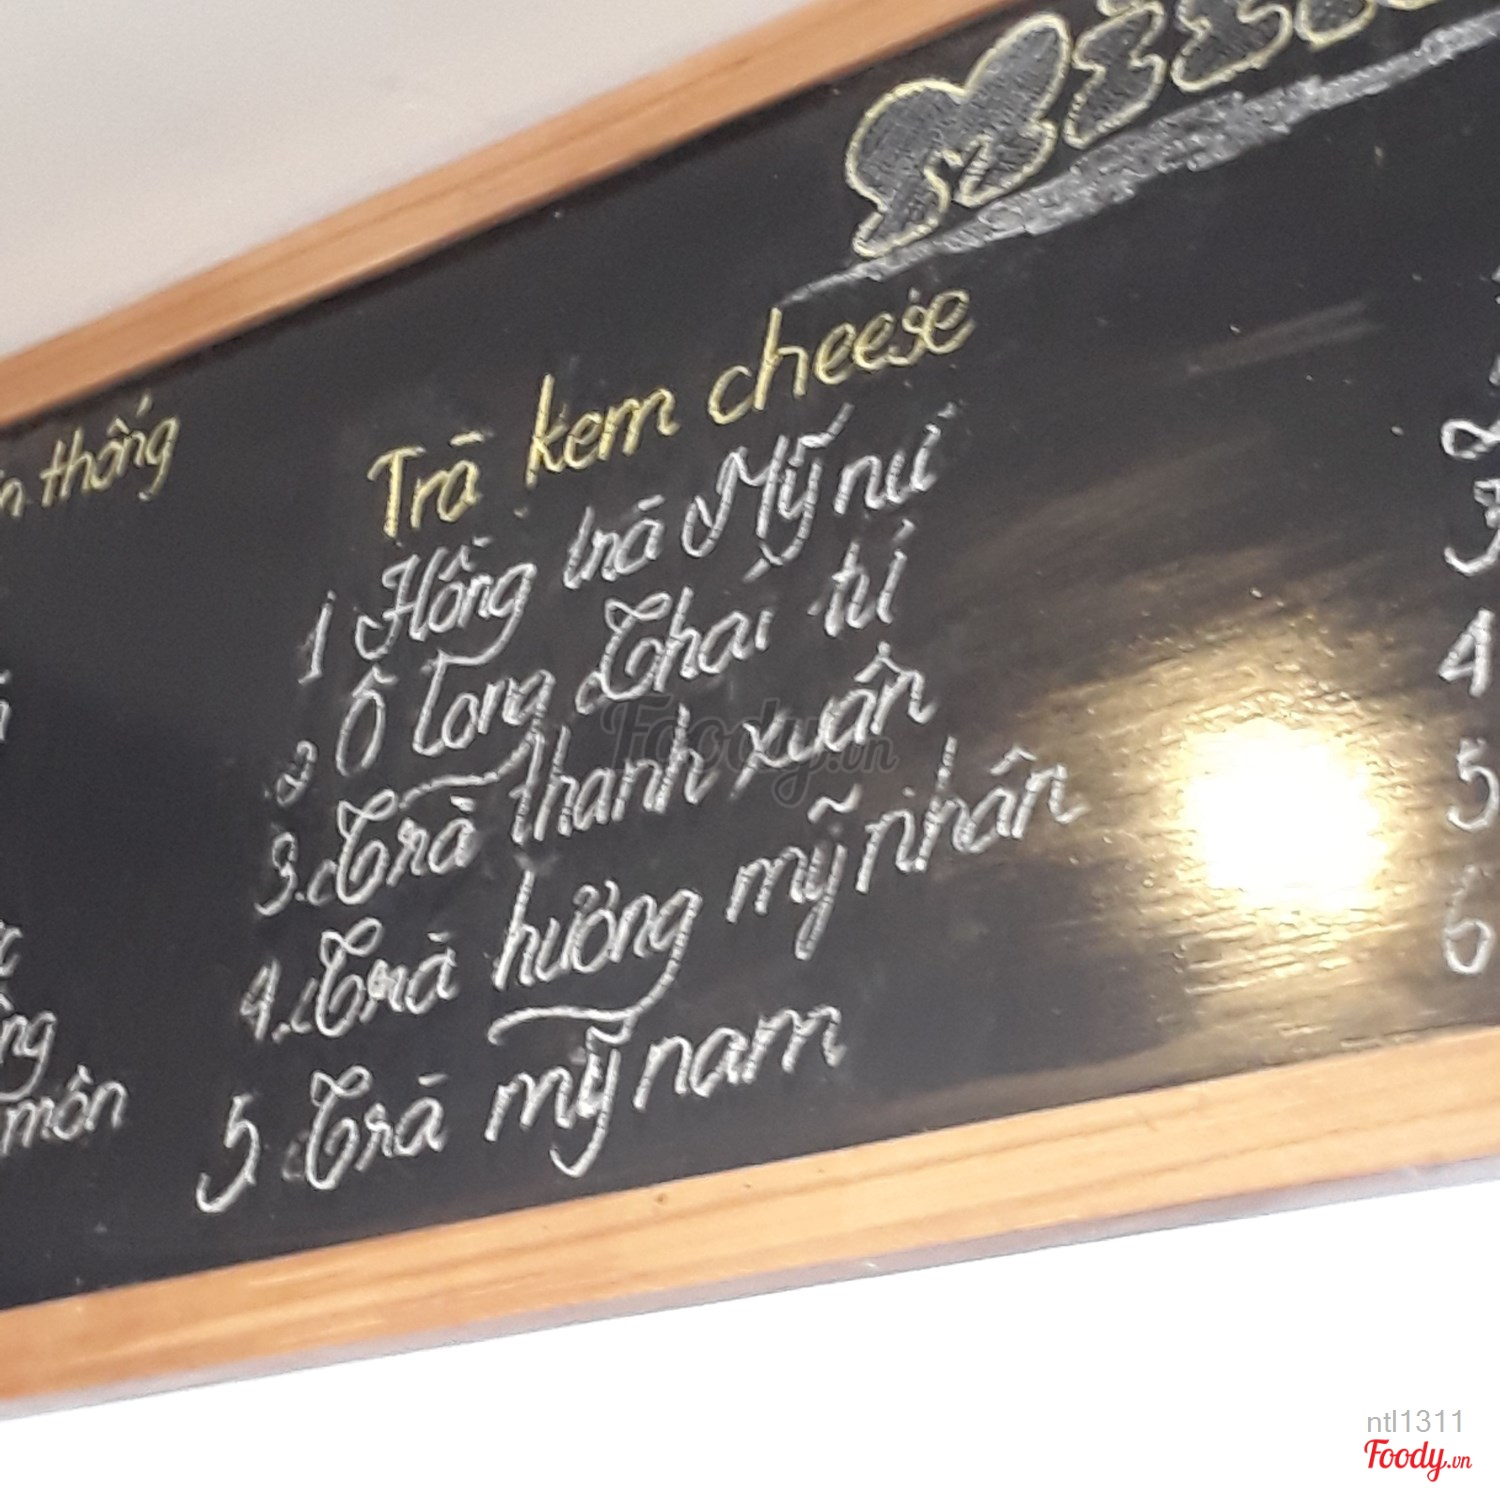 thống
Trà kem cheese
1 Hồng trà Mỹ nữ
2 Ô long Thái tử
3. Trà thanh xuân
4. Trà hường mỹ nhân
5. Trà mỹ nam
ng
môn
3
4
5
6
Foody.vn
ntl1311
Foody.vn